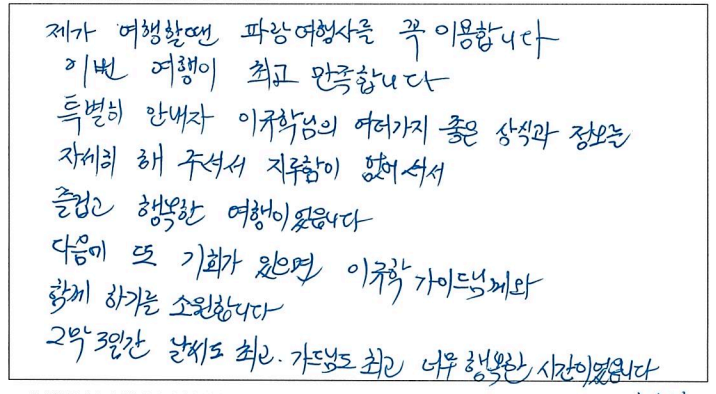 제가 여행할땐 파랑여행사를 꼭 이용합니다
이번 여행이 최고 만족합니다
특별히 안내자 이규학님의 여러가지 좋은 상식과 정보를
자세히 해 주셔서 지루함이 없어서
즐겁고 행복한 여행이었읍니다
다음에 또 기회가 있으면 이규학 가이드님께와
함께 하기를 소원합니다
2박3일간 날씨도 최고. 가드님도 최고 너무 행복한 시간이었읍니다